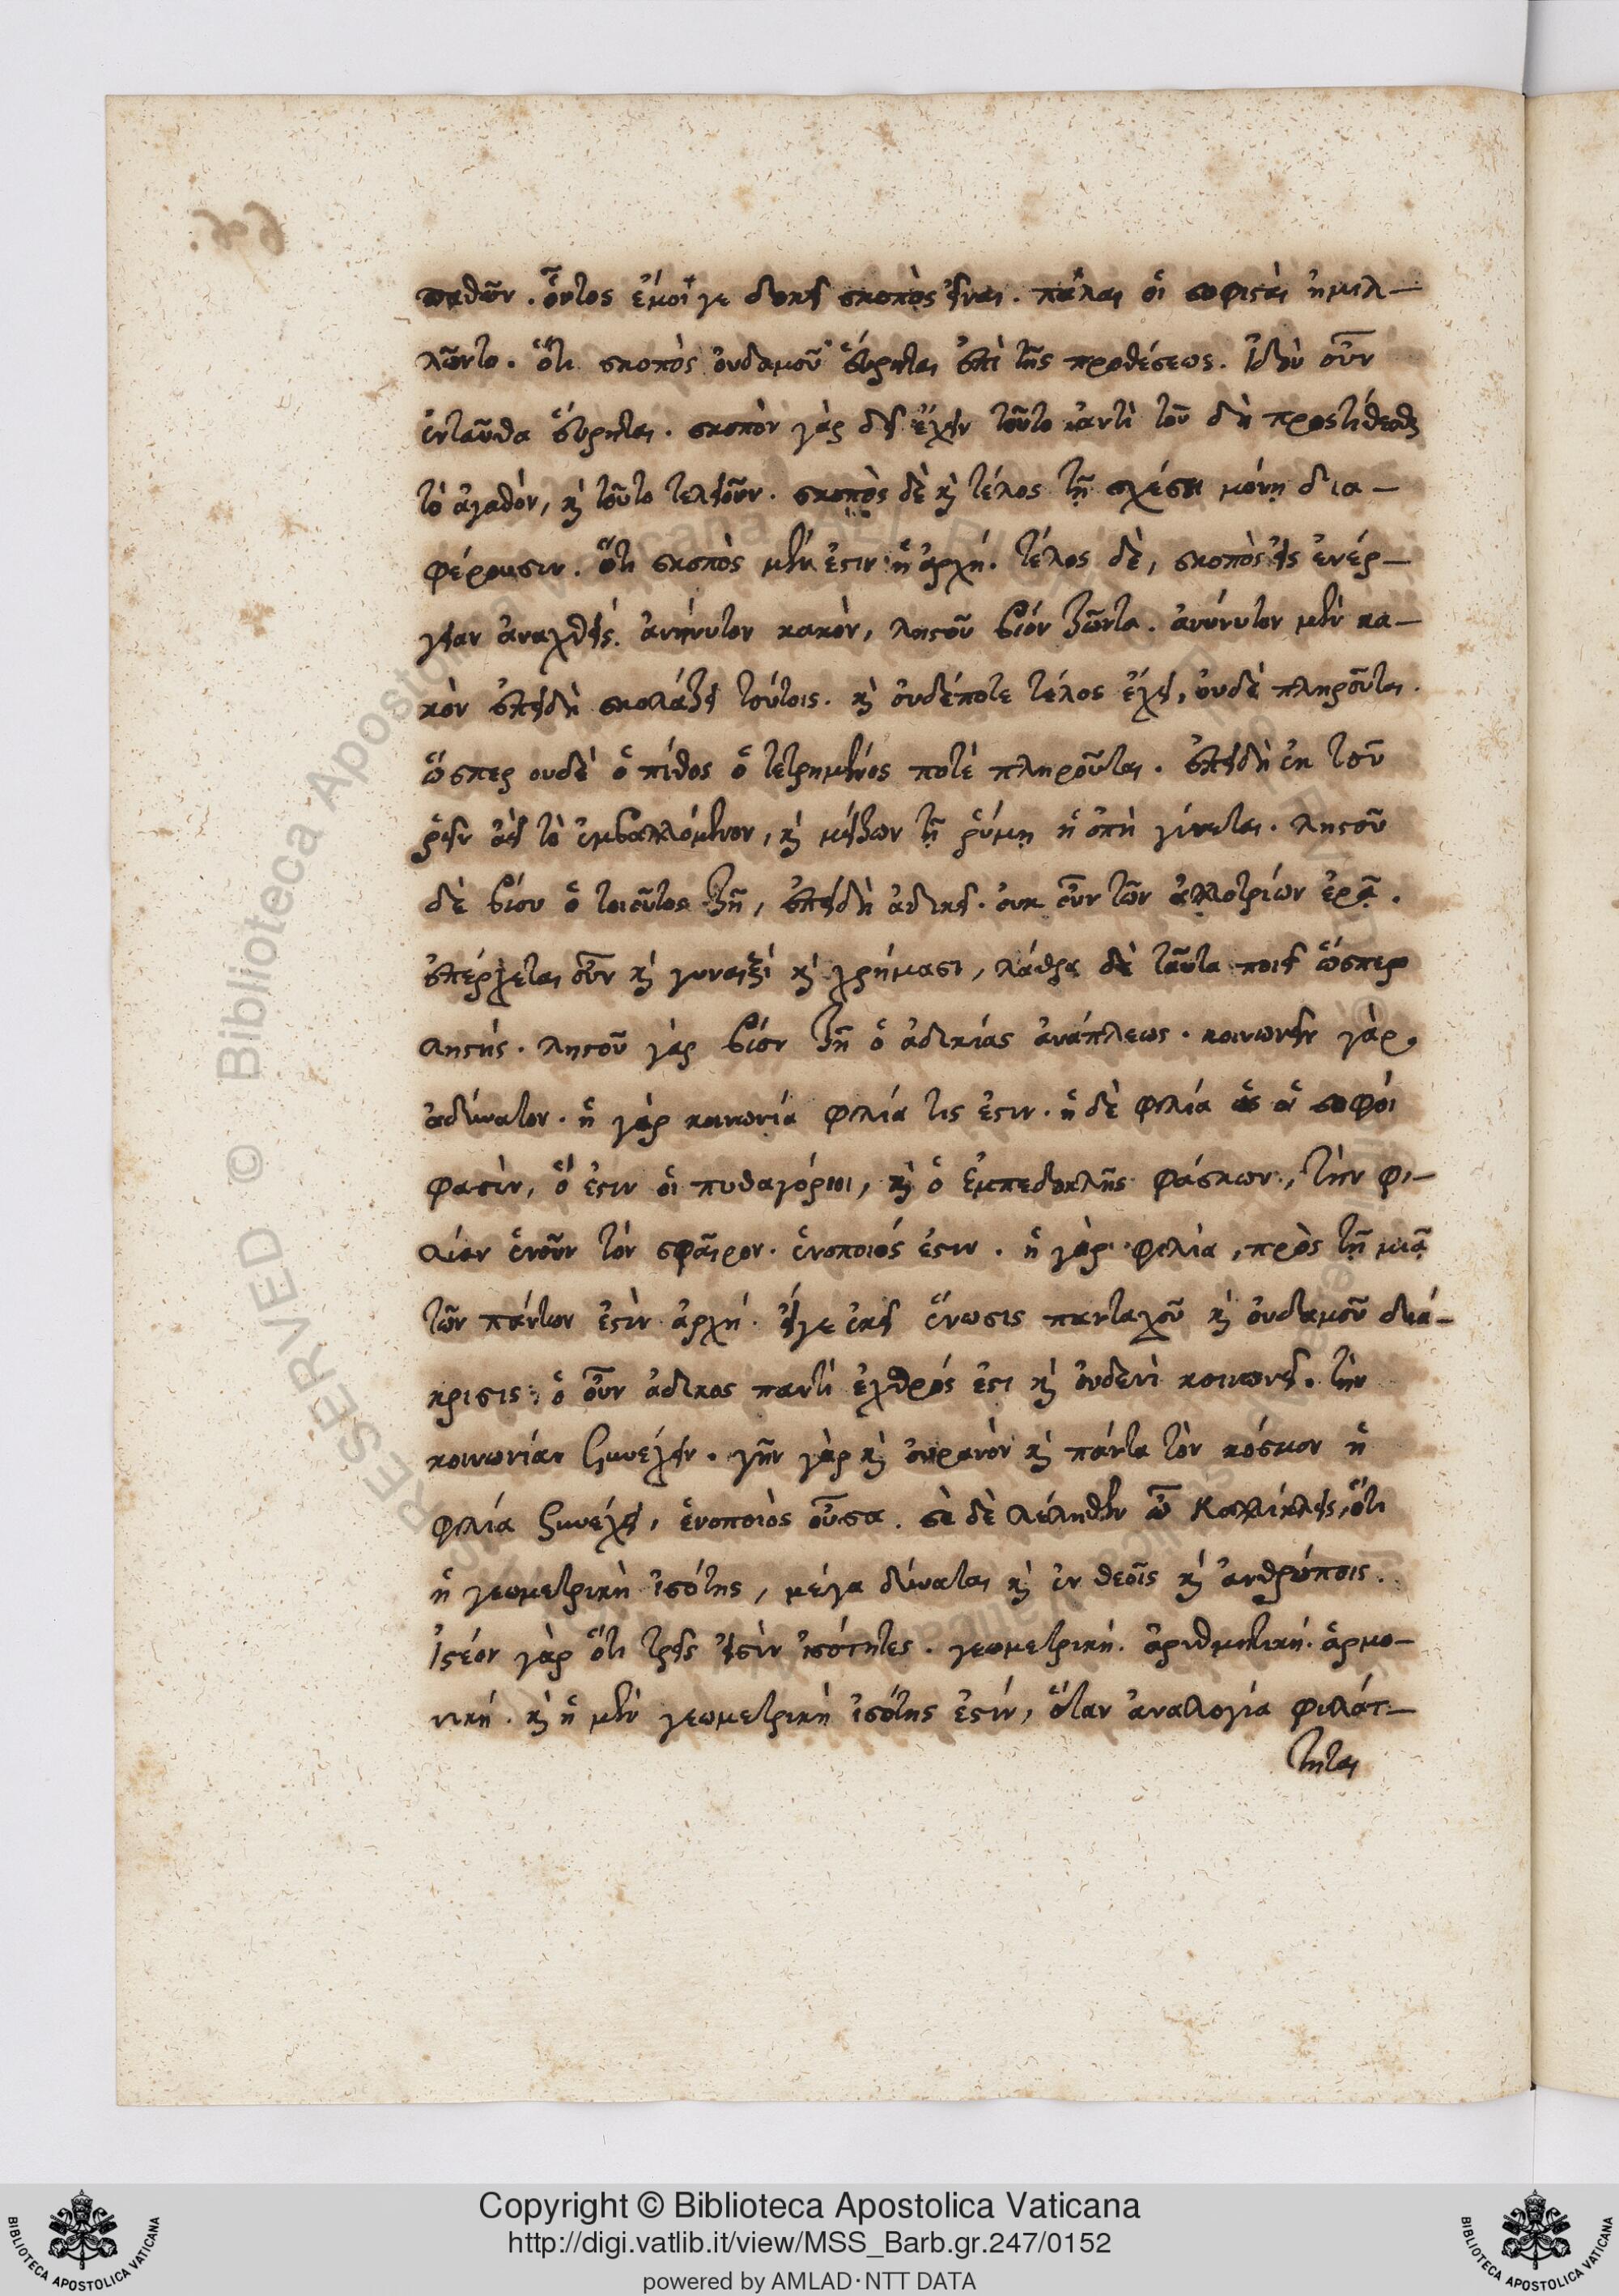 παθῶν. οὗτος ἐμοί γε δοκεῖ σκοπὸς εἶναι. πάλαι οἱ σοφισταὶ ἡμιλ-
λῶντο. ὅτι σκοπὸς οὐδαμοῦ εὕρηται ἐπὶ τῆς προθέσεως. ἰδοὺ οὖν
ἐνταῦθα εὕρηται. σκοπὸν γὰρ δεῖ ἔχειν τοῦτο ἀντὶ τοῦ δὴ προστίθεσθαι
τὸ ἀγαθόν, καὶ τοῦτο τελειοῦν. σκοπὸς δὲ καὶ τέλος τῇ σχέσει μόνῃ δια-
φέρουσιν. ὅτι σκοπὸς μέν ἐστιν ἡ ἀρχή. τέλος δὲ, σκοπὸς εἰς ἐνέρ-
γειαν ἀναχθείς. ἀνήνυτον κακόν, λῃστοῦ βίον ζῶντα. ἀνήνυτον μὲν κα-
κὸν ἐπειδὴ σχολάζει τούτοις. καὶ οὐδέποτε τέλος ἔχει, οὐδὲ πληροῦται.
ὥσπερ ουδὲ ὁ πίθος ὁ τετρημένος ποτὲ πληροῦται. ἐπειδὴ ἐκ τοῦ
ῥεῖν ἀεὶ τὸ ἐμβαλλόμενον, καὶ μείζων τῇ ῥύμῃ ἡ ὀπὴ γίνεται. λῃστοῦ
δὲ βίον ὁ τοιοῦτος ζῇ, ἐπειδὴ ἀδικεῖ. οὐκ οὖν τῶν ἀλλοτρίων ἐρᾷ.
ἐπέρχεται οὖν καὶ γυναιξὶ καὶ χρήμασι, λάθρα δὲ ταῦτα ποιεῖ ὥσπερ
λῃστής. λῃστοῦ γὰρ βίον ζῇ ὁ ἀδικίας ἀνάπλεως. κοινωνεῖν γὰρ
ἀδύνατον. ἡ γὰρ κοινωνία φιλία τις ἐστιν. ἡ δὲ φιλία ὡς οἱ σοφοί
φασὶν, ὅ ἐστιν οἱ πυθαγόρειοι, καὶ ὁ ἐμπεδοκλῆς φάσκων, τὴν φι-
λίαν ἑνοῦν τὸν σφαῖρον. ἑνοποιός ἐστιν. ἡ γὰρ φιλία, πρὸς τῇ μιᾷ
τῶν πάντων ἐστὶν ἀρχή. εἴγε ἐκεῖ ἕνωσις πανταχοῦ καὶ οὐδαμοῦ διά-
κρισις. ὁ οὖν ἄδικος παντὶ ἐχθρός ἐστι καὶ οὐδενὶ κοινωνεῖ. τὴν
κοινωνίαν ξυνέχειν. γῆν γὰρ καὶ οὐρανὸν καὶ πάντα τὸν κόσμον ἡ
φιλία ξυνέχει, ἑνοποιὸς οὖσα. σὲ δὲ λέληθεν ὦ Καλλίκλεις, ὅτι
ἡ γεωμετρικὴ ἰσότης, μέγα δύναται καὶ ἐν θεοῖς καὶ ἀνθρώποις.
ἰστέον γὰρ ὅτι τρεῖς εἰσὶν ἰσότητες. γεωμετρική. ἀριθμητική. ἁρμο-
νική. καὶ ἡ μὲν γεωμετρικὴ ἰσότης ἐστίν, ὅταν ἀναλογία φυλάτ-
τηται
RESERVED © Biblioteca Apostolica Vaticana
BIBLIOTECA APOSTOLICA VATICANA
Copyright © Biblioteca Apostolica Vaticana
http://digi.vatlib.it/view/MSS_Barb.gr.247/0152
powered by AMLAD·NTT DATA
BIBLIOTECA APOSTOLICA VATICANA